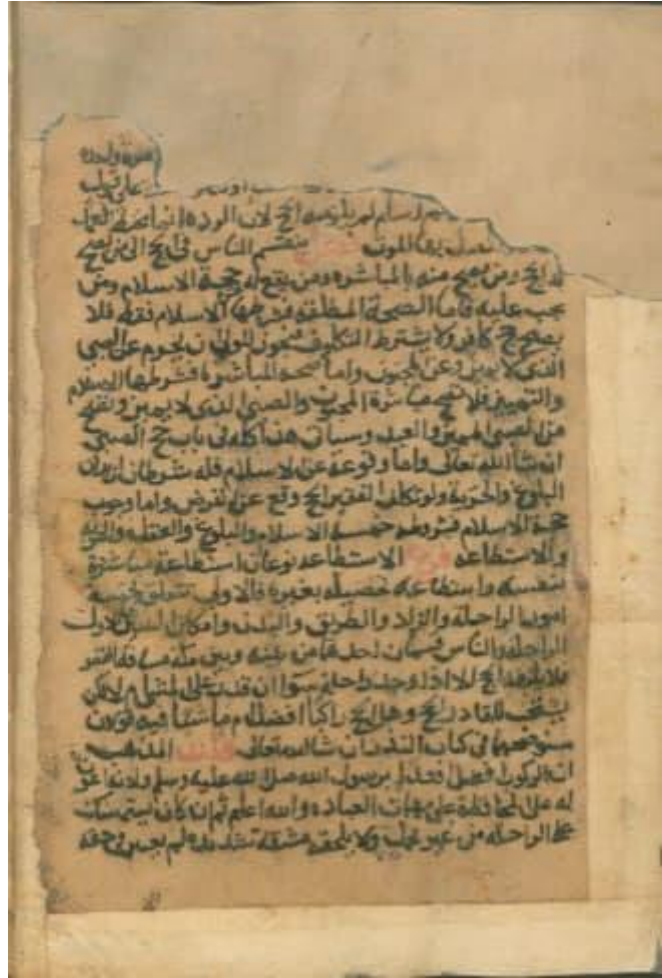 مرة واحدة
على قول
ثم اسلم لم يلزمه الحج لان الردة انما تحبط العمل
بها الموت فصل ينقسم الناس في الحج الى من يصح
له الحج ومن يصح منه بالمباشرة ومن يقع له عن حجة الاسلام ومن
يجب عليه فاما الصحة المطلقة فشرطها الاسلام فقط فلا
يصح حج كافر ولا يشترط التكليف فيجوز للولي ان يحرم عن الصبي
الذي لا يميز وعن المجنون واما صحة المباشرة فشرطها الاسلام
والتمييز فلا تصح مباشرة المجنون والصبي الذي لا يميز وتصح
من الصبي المميز والعبد وسياتي هذا كله في باب حج الصبي
ان شاء الله تعالى واما وقوعه عن الاسلام فله شرطان زايدان
البلوغ والحرية ولو تكلف الفقير الحج وقع عن الفرض واما وجوب
حجة الاسلام فشروطه خمسة الاسلام والبلوغ والعقل والحرية
والاستطاعة فرع الاستطاعة نوعان استطاعة مباشرة
بنفسه واستطاعة تحصيله بغيره فالاولى تتعلق بخمسة
امور الراحلة والزاد والطريق والبدن وامكان السير الاول
الراحلة والناس قسمان احدهما من بينه وبين مكة مسافة القصر
فلا يلزمه الحج الا اذا وجد راحلة سوا ان قدر على المشي ام لا لكن
يستحب للقادر الحج وهل الحج راكبا افضل ام ماشيا فيه قولان
سنوضحهما في كتاب النذر ان شا الله تعالى قلت المذهب
ان الركوب افضل اقتداء برسول الله صلى الله عليه وسلم ولانه اعون
له على المحافظة على مهمات العبادة والله اعلم ثم ان كان يستمسك
على الراحلة من غير محمل ولا يلحقه مشقة شديدة لم يعتبر في حقه